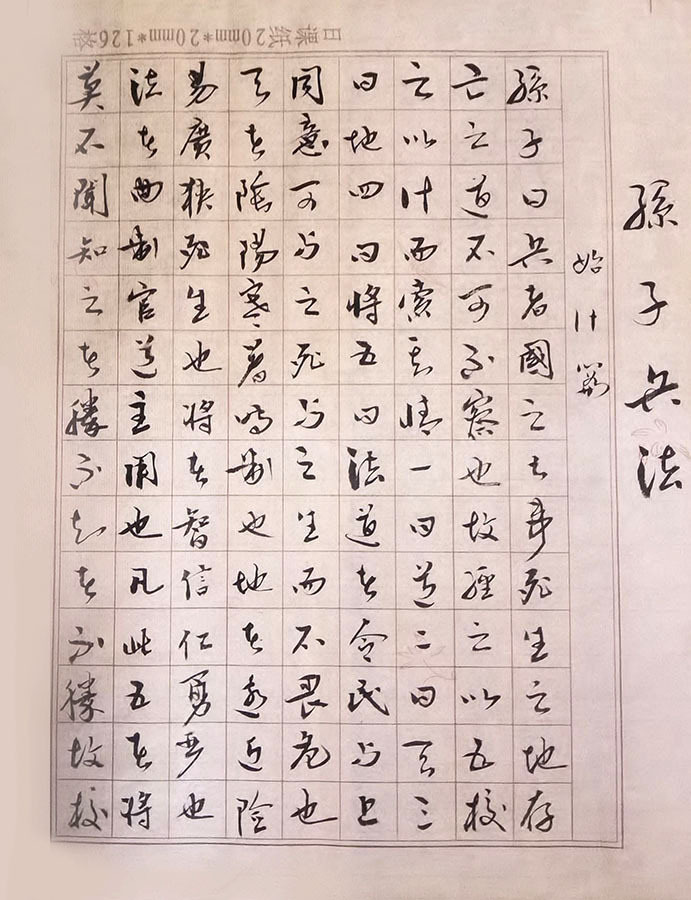 孫子兵法
始計篇
孫子曰兵者國之大事死生之地存
亡之道不可不察也故經之以五校
之以計而索其情一曰道二曰天三
曰地四曰將五曰法道者令民與上
同意可與之死與之生而不畏危也
天者陰陽寒暑時制也地者遠近險
易廣狹死生也將者智信仁勇嚴也
法者曲制官道主用也凡此五者將
莫不聞知之者勝不知者不勝故校
日课纸20mm*20mm*126格